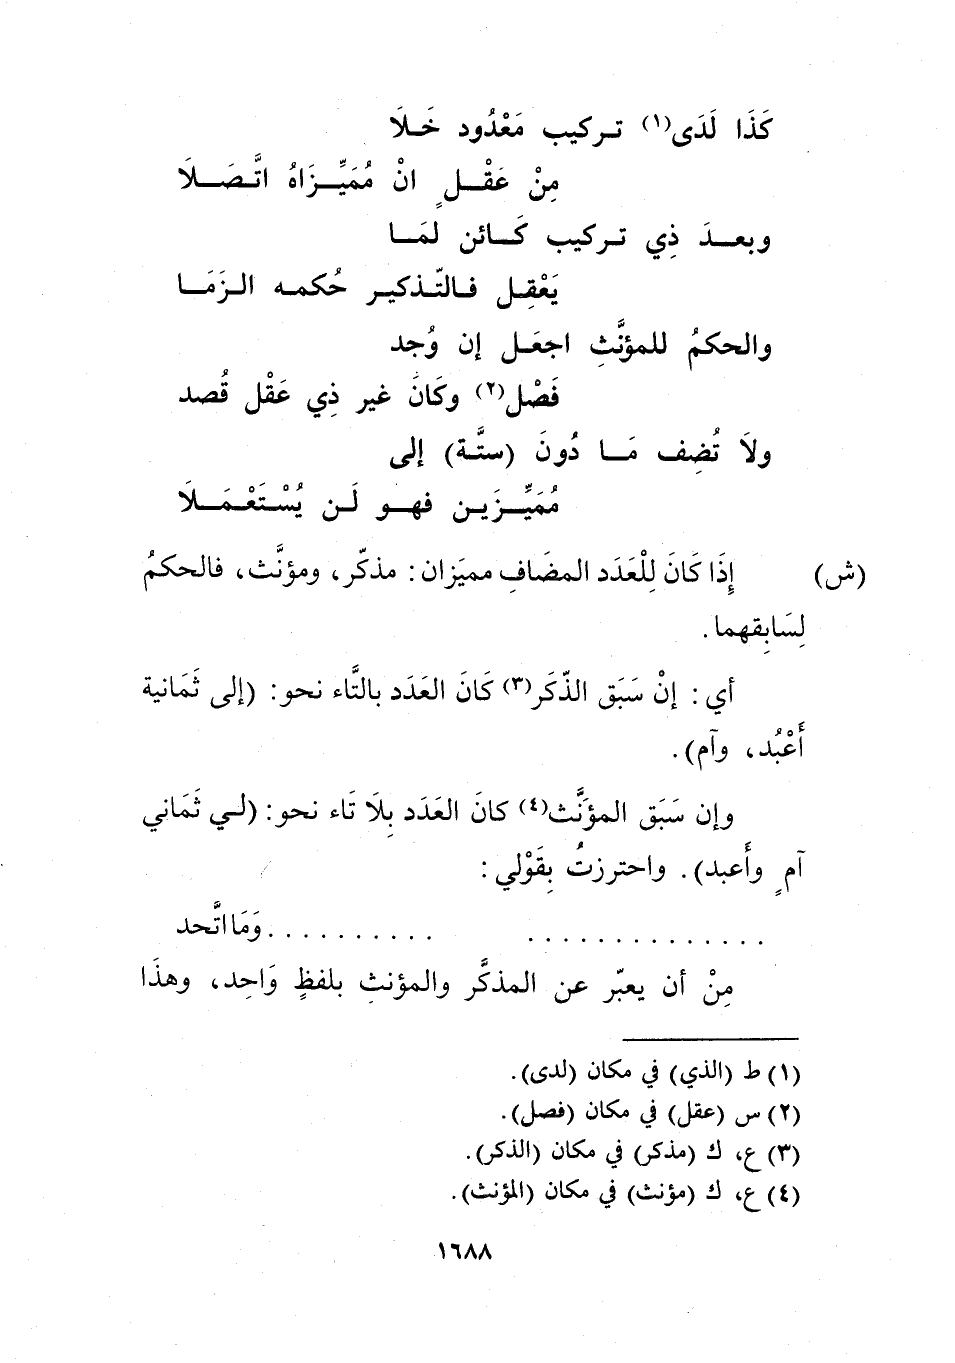 كَذَا لَدَى(١) تركيب مَعْدُود خَلَا
مِنْ عَقْلٍ انْ مُمَيِّزَاهُ اتَّصَلَا
وبعدَ ذِي تركيب كَائن لمَا
يَعْقِل فالتّذكير حُكمه الزَمَا
والحكمُ للمؤنَّثِ اجعَل إن وُجد
فَصْل(٢) وكَانَ غير ذِي عَقْل قُصد
ولَا تُضِف مَا دُونَ (ستَّة) إلى
مُمَيِّزَين فهو لَن يُسْتَعْمَلَا
(ش) إِذَا كَانَ لِلْعَدَد المضَافِ مميَزان: مذكّر، ومؤنَّث، فالحكمُ
لِسَابِقِهما.
أي: إنْ سَبَق الذّكَر(٣) كَانَ العَدَد بالتَّاء نحو: (إلى ثَمَانية
أَعْبُد، وآم).
وإن سَبَق المؤنَّث(٤) كانَ العَدَد بِلَا تَاء نحو: (لي ثَمَاني
آمٍ وأَعبد). واحترزتُ بِقَوْلي:
. . . . . . . . . . . . . . . . . . . . . . . وَمَا اتَّحد
مِنْ أن يعبّر عن المذكَّر والمؤنثِ بلفظٍ وَاحِد، وهذَا
(١) ط (الذي) في مكان (لدى).
(٢) س (عقل) في مكان (فصل).
(٣) ع، ك (مذكر) في مكان (الذكر).
(٤) ع، ك (مؤنث) في مكان (المؤنث).
١٦٨٨